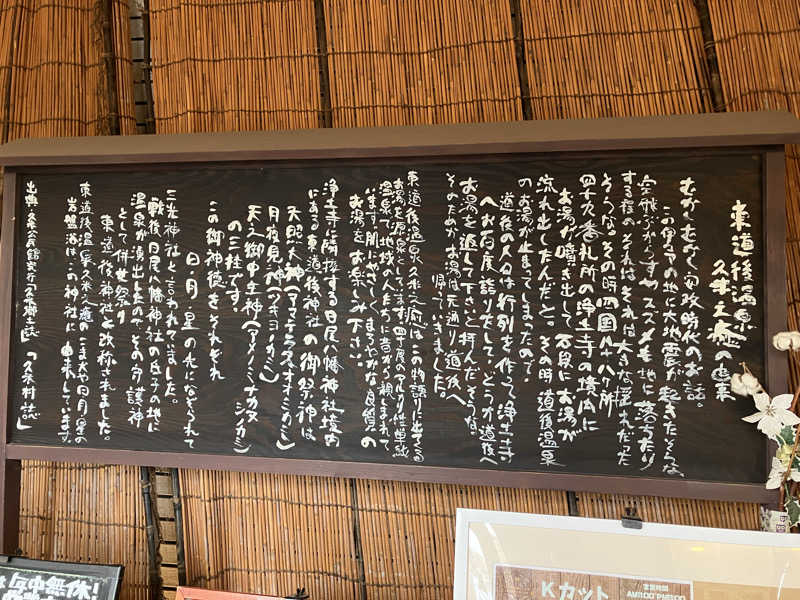 東道後温泉
久米之癒の由来
むかしむかし、旧政時代のお話。
この伊予の地に大地震が起きたそうな。
空飛ぶからすやスズメも地に落ちており
する程のそれはそれは大きな揺れだった
そうな。その時、四国八十八ヶ所
四十九番札所の浄土寺の境内に
お湯が噴き出して石段にお湯が
流れ出したんだと。その時、道後温泉
のお湯が止まってしまったので、
道後の人々は行列を作って浄土寺
へお百度詣りをして、どうか道後へ
お湯を返して下さいと拝んだそうな。
そのためか、お湯は元通り道後へ
帰っていきました。
東道後温泉久米之癒は、この物語に出てくる
お湯を源泉としてます。四十度のアルカリ性単純
温泉で、地域の人たちに昔から親しまれて
います。肌にやさしく、まろやかな良質の
お湯をお楽しみ下さい。
浄土寺に隣接する日尾八幡神社境内
にある東道後神社の御祭神は
天照大神(アマテラスオオミカミ)
月夜見神(ツキヨノカミ)
天之御中主神(アメノミナカヌシノカミ)
の三柱です。
この御神徳をそれぞれ
日・月・星の光になぞらえて
三光神社と言われてました。
戦後、日尾八幡神社の氏子の地に
温泉が湧出したので、その守護神
として併せ祭り
東道後神社と改称されました。
東道後温泉久米之癒のこま犬や日月星の
岩盤浴は、この神社に由来しています。
出典・久米公民館発行「久米郷土誌」「久米村誌」
年中無休!
Kカット
営業時間